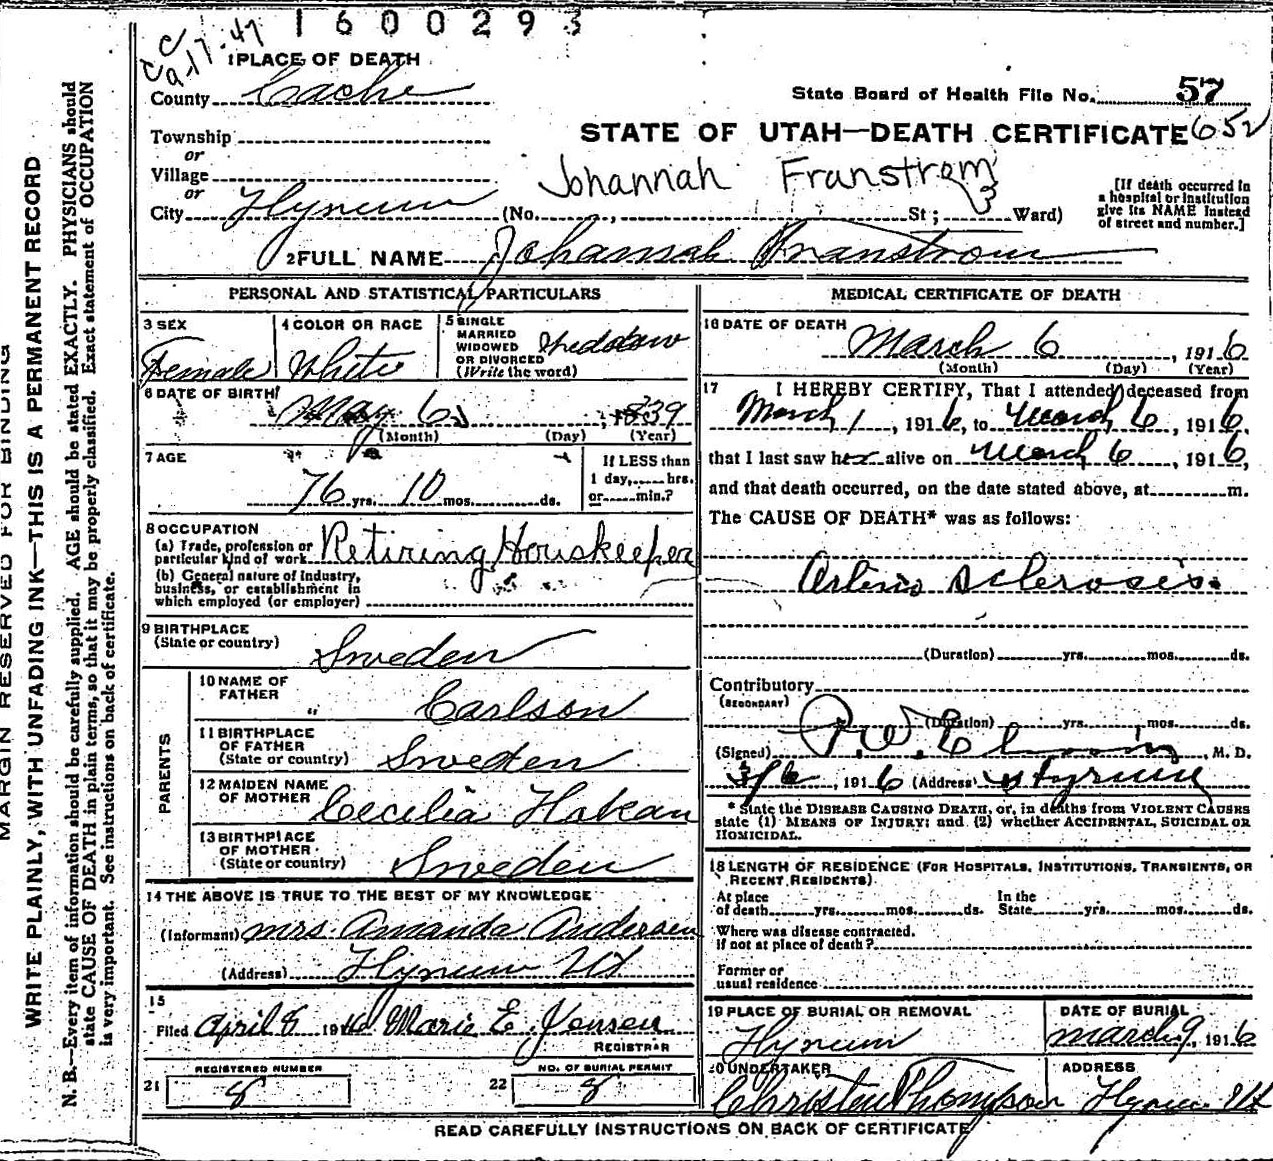 1600293
CC
9-17-47
1 PLACE OF DEATH
County Cache
State Board of Health File No. 57
Township
or
STATE OF UTAH—DEATH CERTIFICATE 652
Village
or
Johannah Franstrom
City Hyrum (No. , St ; 3 Ward)
[If death occurred in
a hospital or institution
give its NAME instead
of street and number.]
2 FULL NAME Johannah Franstrom
PERSONAL AND STATISTICAL PARTICULARS
3 SEX
Female
4 COLOR OR RACE
White
5 SINGLE
MARRIED
WIDOWED
OR DIVORCED
(Write the word)
6 DATE OF BIRTH
May 6 , 1839
(Month) (Day) (Year)
7 AGE
76 yrs. 10 mos. ds.
If LESS than
1 day, hrs.
or min.?
8 OCCUPATION
(a) Trade, profession or
particular kind of work Retiring Houskeeper
(b) General nature of industry,
business, or establishment in
which employed (or employer)
9 BIRTHPLACE
(State or country) Sweden
PARENTS
10 NAME OF
FATHER
" Carlson
11 BIRTHPLACE
OF FATHER
(State or country) Sweden
12 MAIDEN NAME
OF MOTHER Cecilia Hakan
13 BIRTHPLACE
OF MOTHER
(State or country) Sweden
14 THE ABOVE IS TRUE TO THE BEST OF MY KNOWLEDGE
(Informant) Mrs. Amanda Andersen
(Address) Hyrum Ut
15
Filed April 8 191 Marie E Jensen
REGISTRAR
REGISTERED NUMBER
21 8
NO. OF BURIAL PERMIT
22 8
MEDICAL CERTIFICATE OF DEATH
16 DATE OF DEATH
March 6 , 1916
(Month) (Day) (Year)
17 I HEREBY CERTIFY, That I attended deceased from
March 1 , 1916, to March 6 , 1916.
that I last saw her alive on March 6 , 1916,
and that death occurred, on the date stated above, at m.
The CAUSE OF DEATH* was as follows:
sclerosis.
(Duration) yrs. mos. ds.
Contributory
(SECONDARY)
(Duration) yrs. mos. ds.
(Signed) , M. D.
3/6 , 1916 (Address) Hyrum
* State the DISEASE CAUSING DEATH, or, in deaths from VIOLENT CAUSES
state (1) MEANS OF INJURY; and (2) whether ACCIDENTAL, SUICIDAL OR
HOMICIDAL.
18 LENGTH OF RESIDENCE (FOR HOSPITALS, INSTITUTIONS, TRANSIENTS, OR
RECENT RESIDENTS)
At place
of death yrs. mos. ds.
In the
State yrs. mos. ds.
Where was disease contracted.
if not at place of death?
Former or
usual residence
19 PLACE OF BURIAL OR REMOVAL
Hyrum
DATE OF BURIAL
March 9, 1916
20 UNDERTAKER
Christen Thompson
ADDRESS
Hyrum Ut
READ CAREFULLY INSTRUCTIONS ON BACK OF CERTIFICATE
MARGIN RESERVED FOR BINDING
WRITE PLAINLY, WITH UNFADING INK—THIS IS A PERMANENT RECORD
N. B.—Every item of information should be carefully supplied. AGE should be stated EXACTLY. PHYSICIANS should
state CAUSE OF DEATH in plain terms, so that it may be properly classified. Exact statement of OCCUPATION
is very important. See instructions on back of certificate.